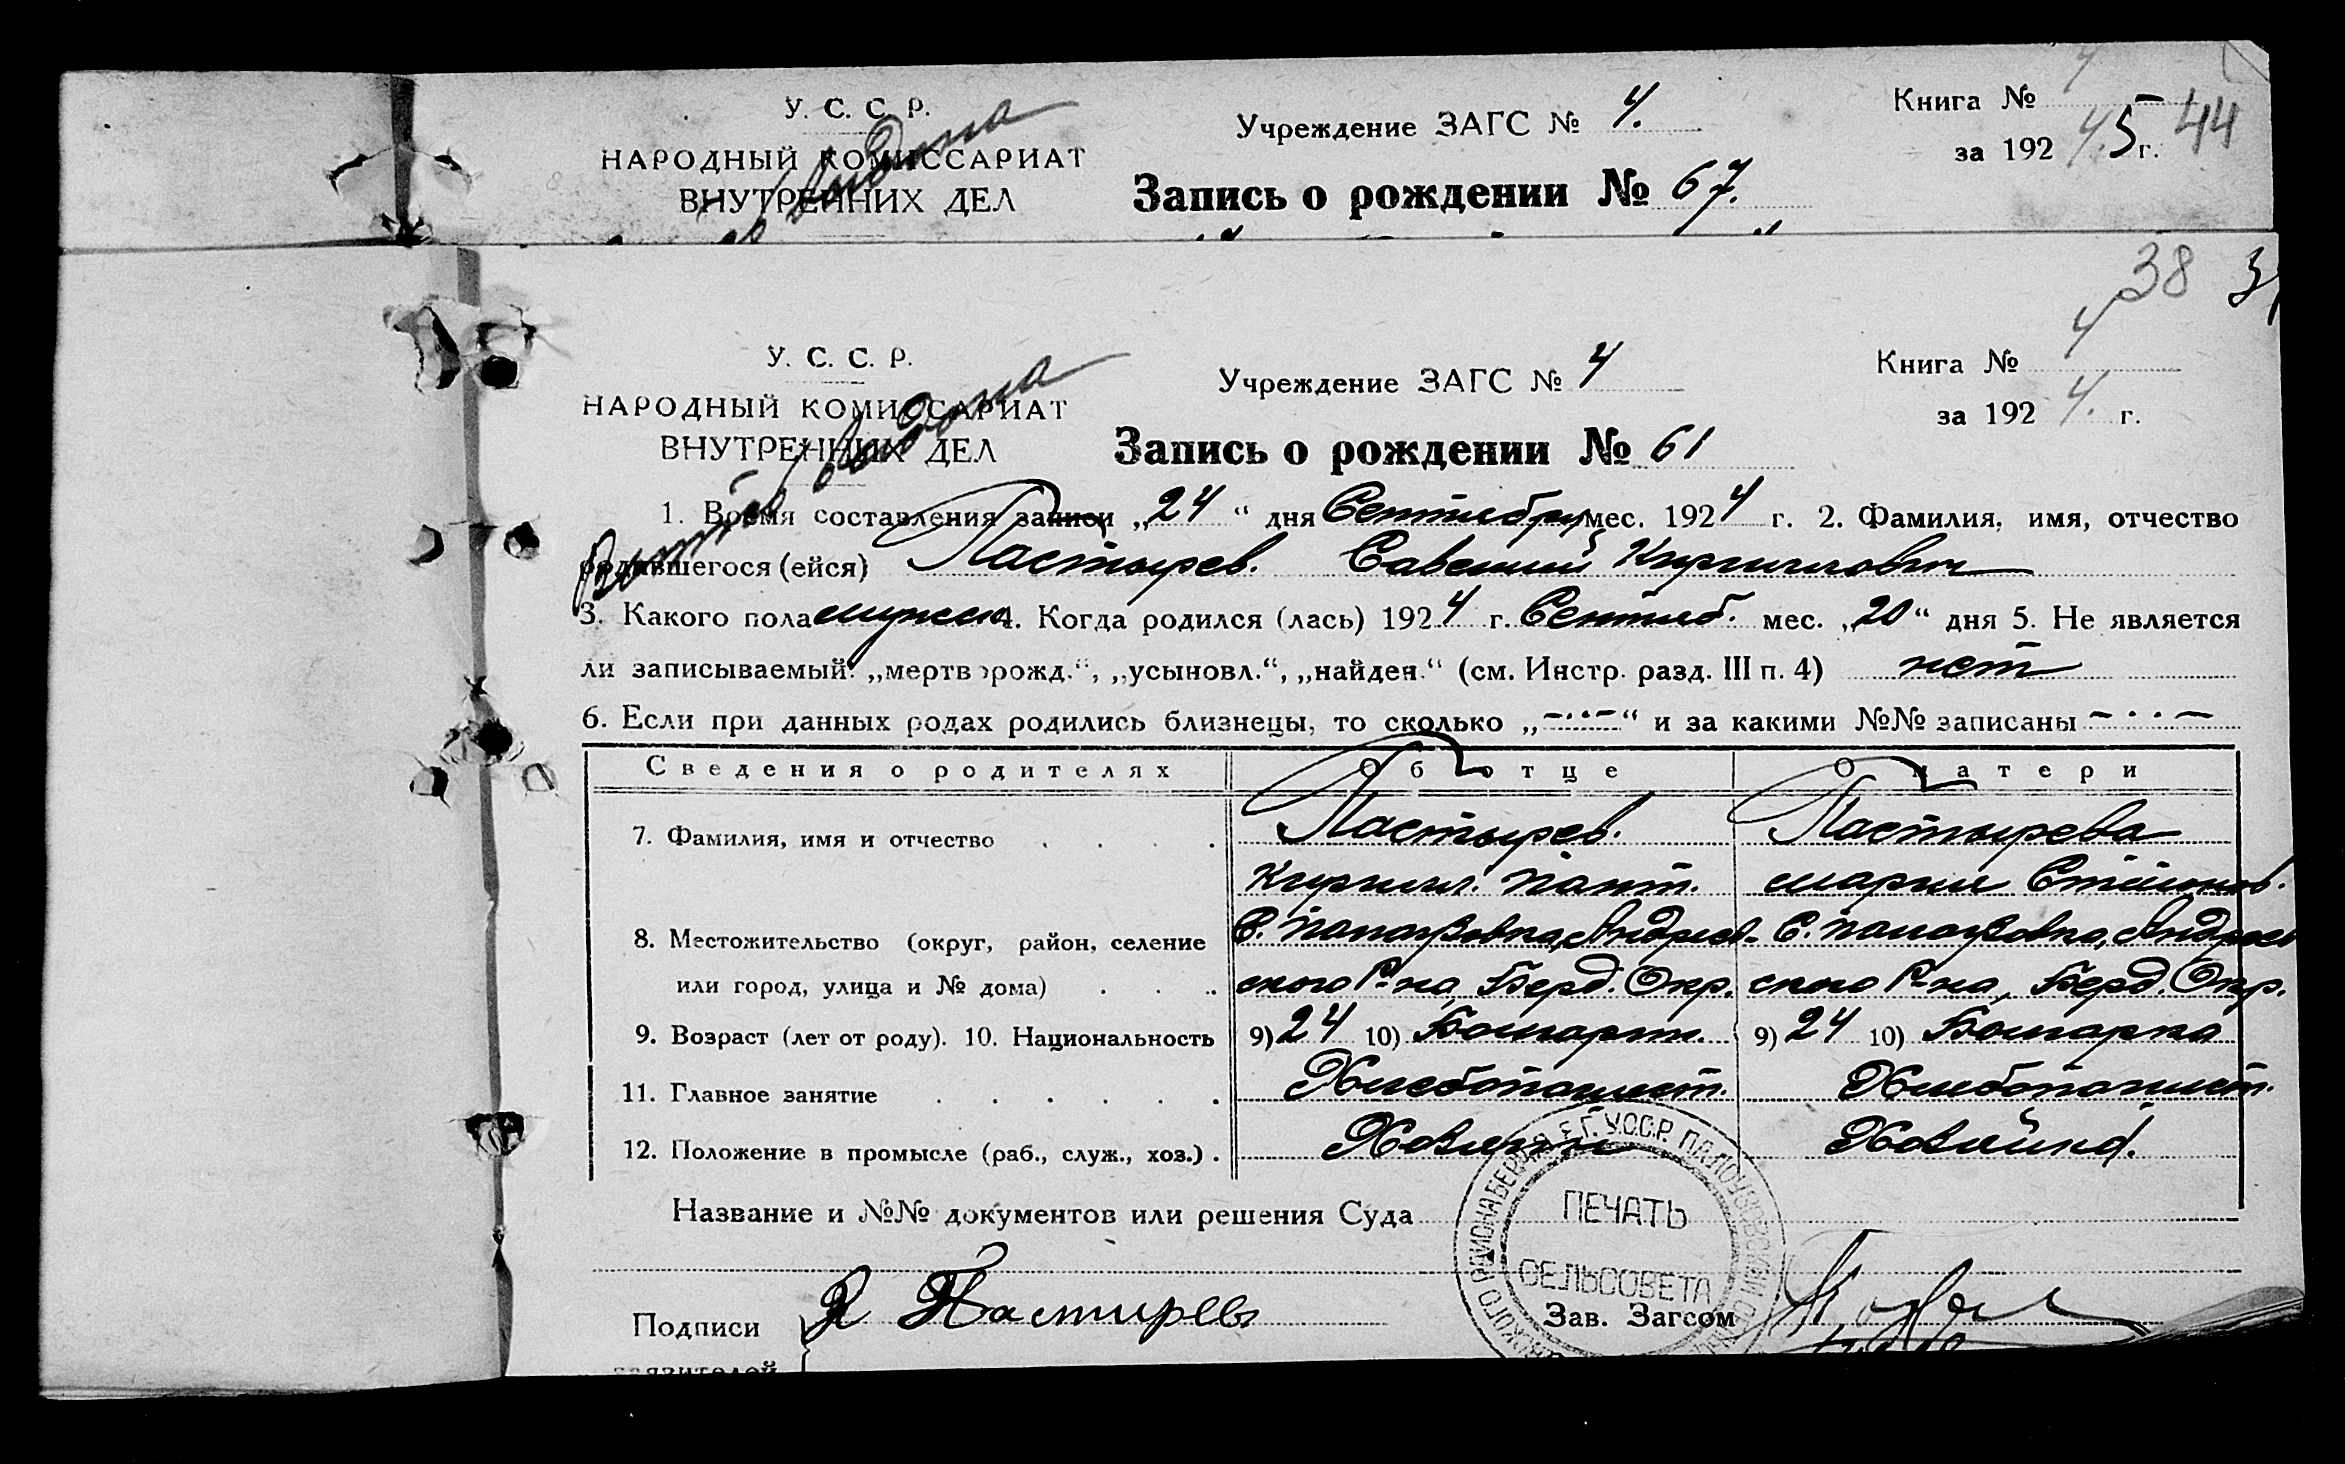 У. С. С. Р.
НАРОДНЫЙ КОМИССАРИАТ
ВНУТРЕННИХ ДЕЛ
выдана
Учреждение ЗАГС № 4.
Запись о рождении № 67.
Книга № 4
за 192 4. 5 г. 44
38
У. С. С. Р.
НАРОДНЫЙ КОМИССАРИАТ
ВНУТРЕННИХ ДЕЛ
выдана
Учреждение ЗАГС № 4
Запись о рождении № 61
Книга № 4
за 192 4. г.
1. Время составления записи „24“ дня Сентября мес. 1924 г. 2. Фамилия, имя, отчество
родившегося (ейся) Пастырев. Савелий Кириллович
3. Какого пола мужск. 4. Когда родился (лась) 1924 г. Сентяб. мес. „20“ дня 5. Не является
ли записываемый: „мертворожд.“, „усыновл.“, „найден.“ (см. Инстр. разд. III п. 4) нет
6. Если при данных родах родились близнецы, то сколько „-··-“ и за какими №№ записаны -··-
Сведения о родителях Об отце О матери
7. Фамилия, имя и отчество Пастырев. Пастырева
Кирилл. Пант. Мария
8. Местожительство (округ, район, селение С. Палаузовка, Андреев- С. Палаузовка, Андреев
или город, улица и № дома) ского Р-на, Берд. Окр. ского Р-на, Берд. Окр.
9. Возраст (лет от роду). 10. Национальность 9) 24 10) Болгарин. 9) 24 10) Болгарка
11. Главное занятие Хлебопашест. Хлебопашест.
12. Положение в промысле (раб., служ., хоз.) Хозяин Хозяйка.
Название и №№ документов или решения Суда
ПЕЧАТЬ
СЕЛЬСОВЕТА
Подписи К Пастирев Зав. Загсом
заявителей